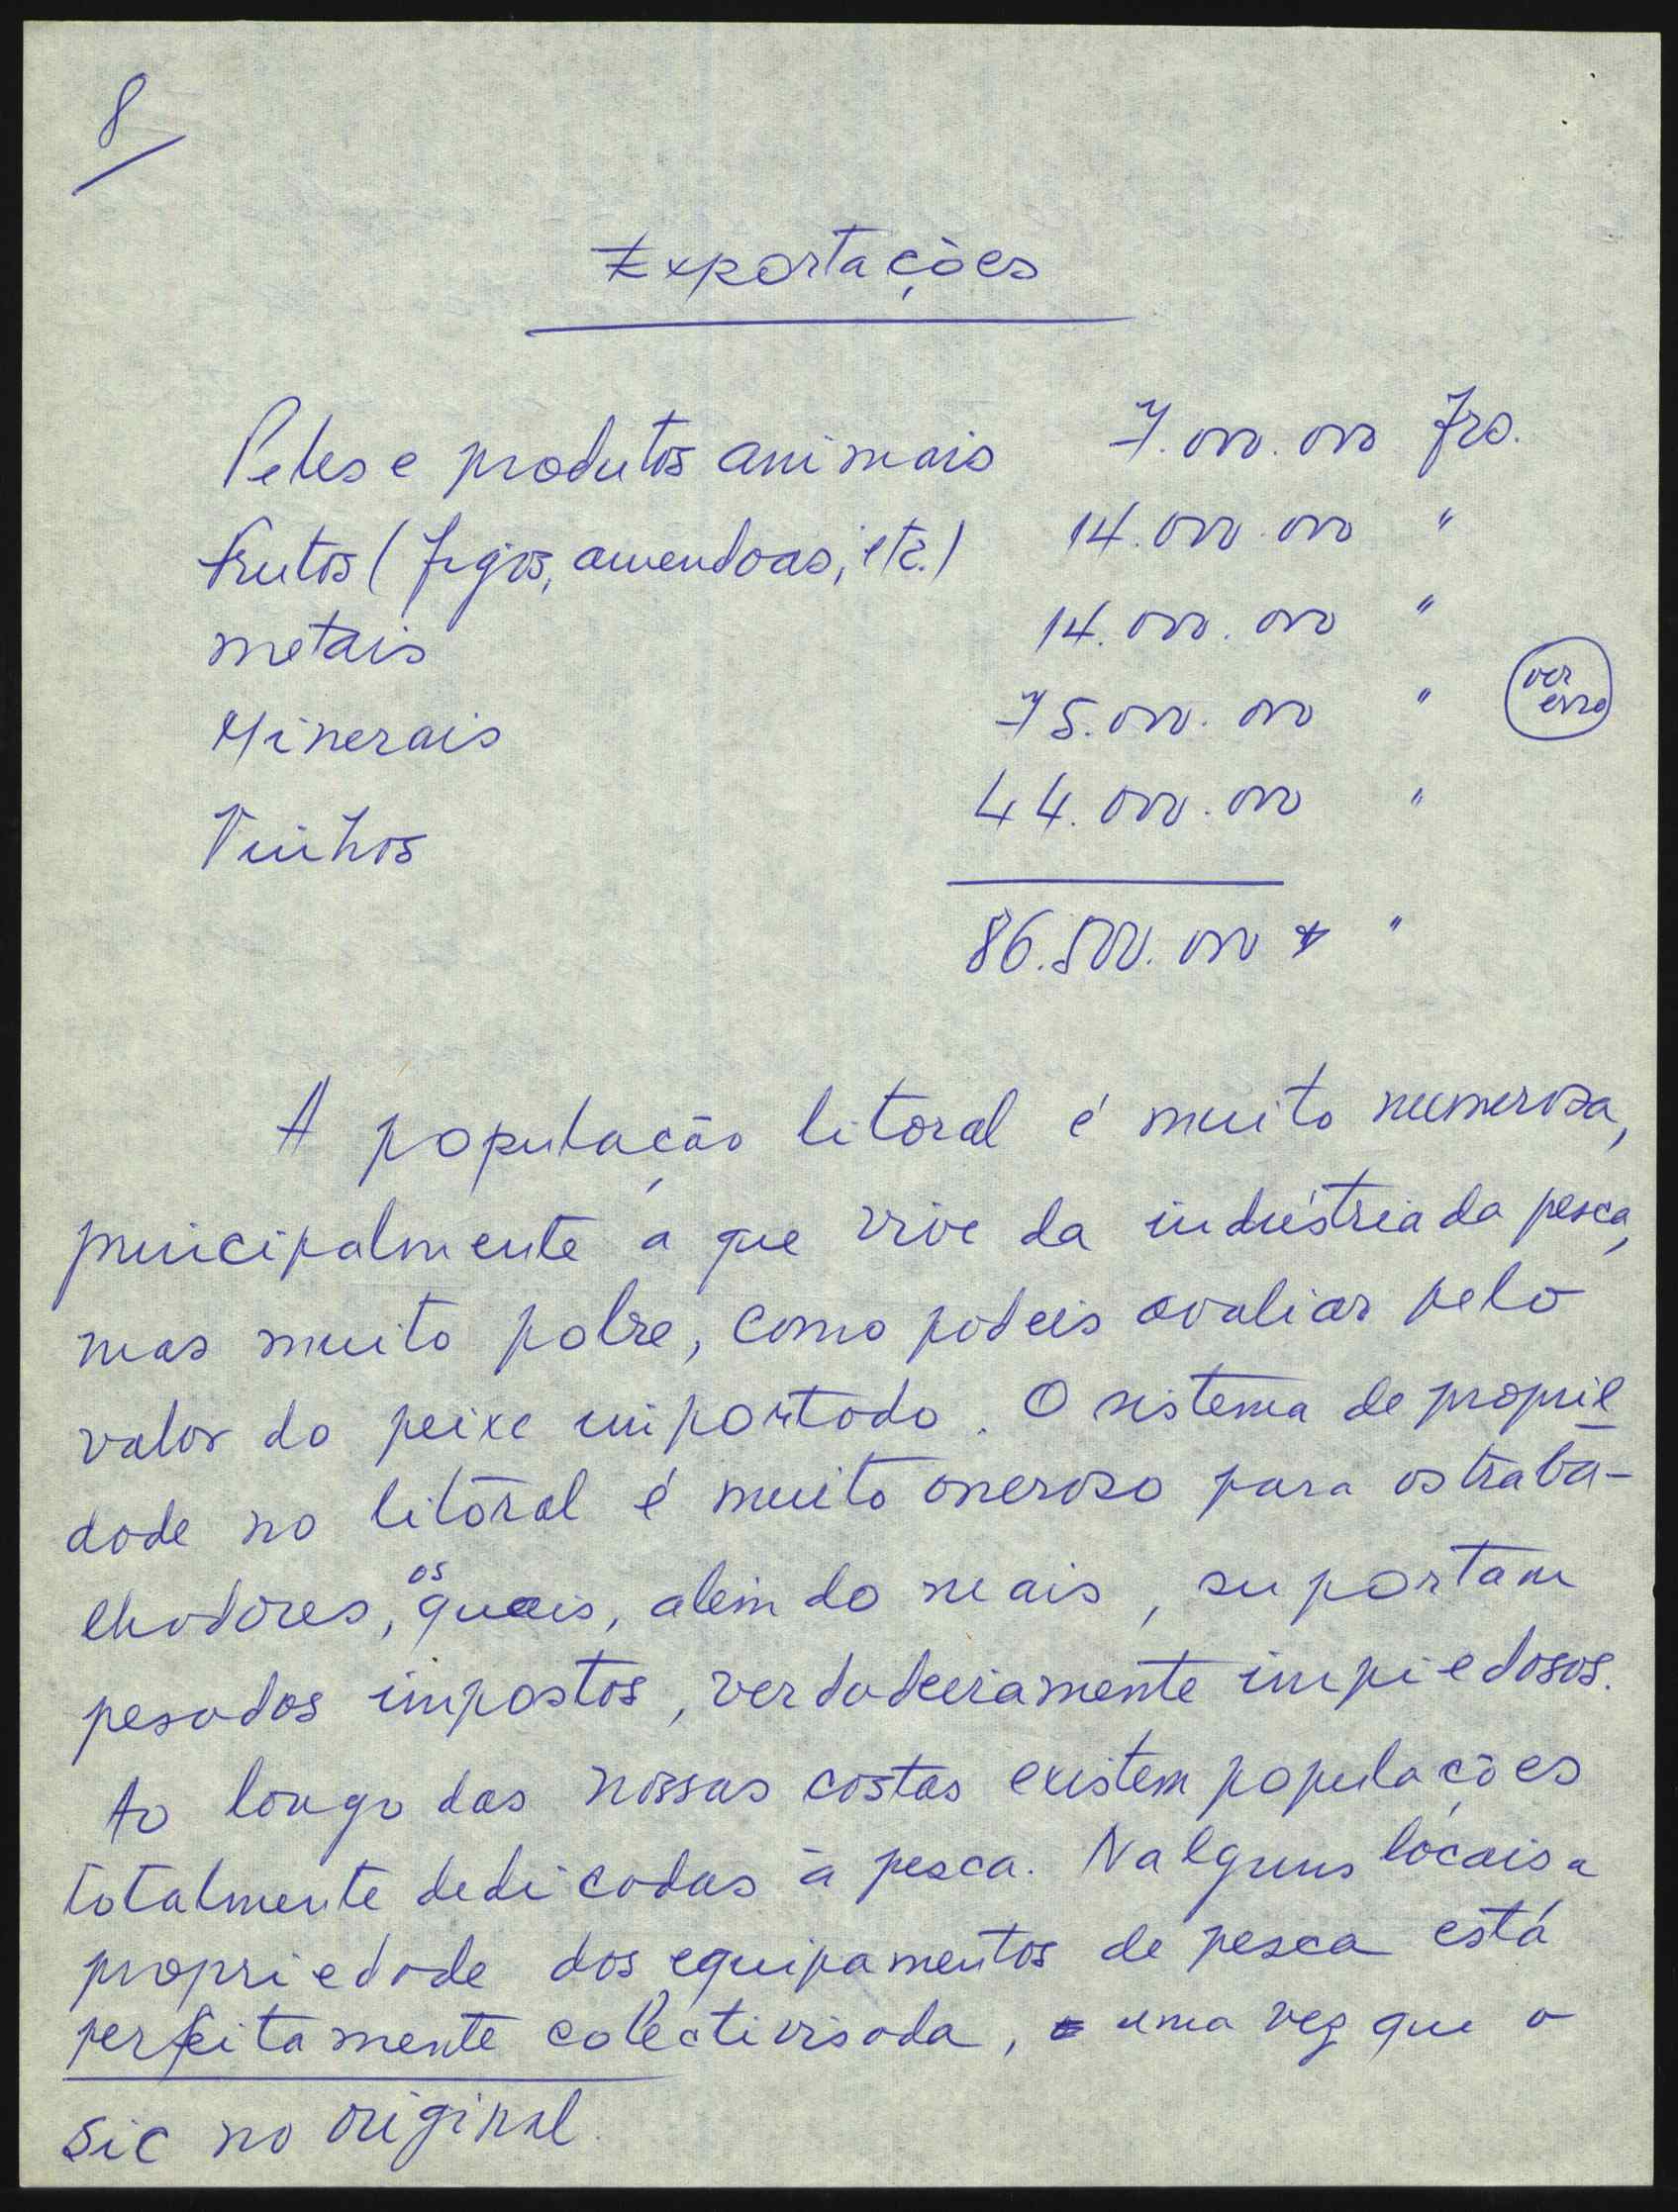 8
Exportações
Peles e produtos animais 7.000.000 frs.
Frutos (figos, amendoas, etc.) 14.000.000 "
metais 14.000.000 "
Minerais 75.000.000 " ver erro
Vinhos 44.000.000 "
86.500.000 * "
A população litoral é muito numerosa,
principalmente a que vive da indústria da pesca,
mas muito pobre, como podeis avaliar pelo
valor do peixe importado. O sistema de proprie
dade no litoral é muito oneroso para os traba-
lhadores, os quais, além do mais, suportam
pesados impostos, verdadeiramente impiedosos.
Ao longo das nossas costas existem populações
totalmente dedicadas à pesca. Nalguns locais a
propriedade dos equipamentos de pesca está
perfeitamente colectivisada, uma vez que o
sic no original.